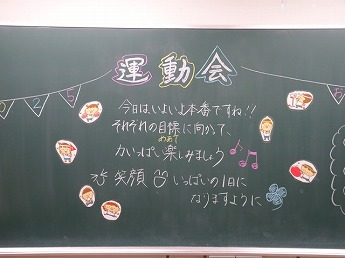 運動会
025
今日はいよいよ本番ですね!!
それぞれの目標に向かって、
めあて
力いっぱい楽しみましょう
笑顔いっぱいの1日に
なりますように